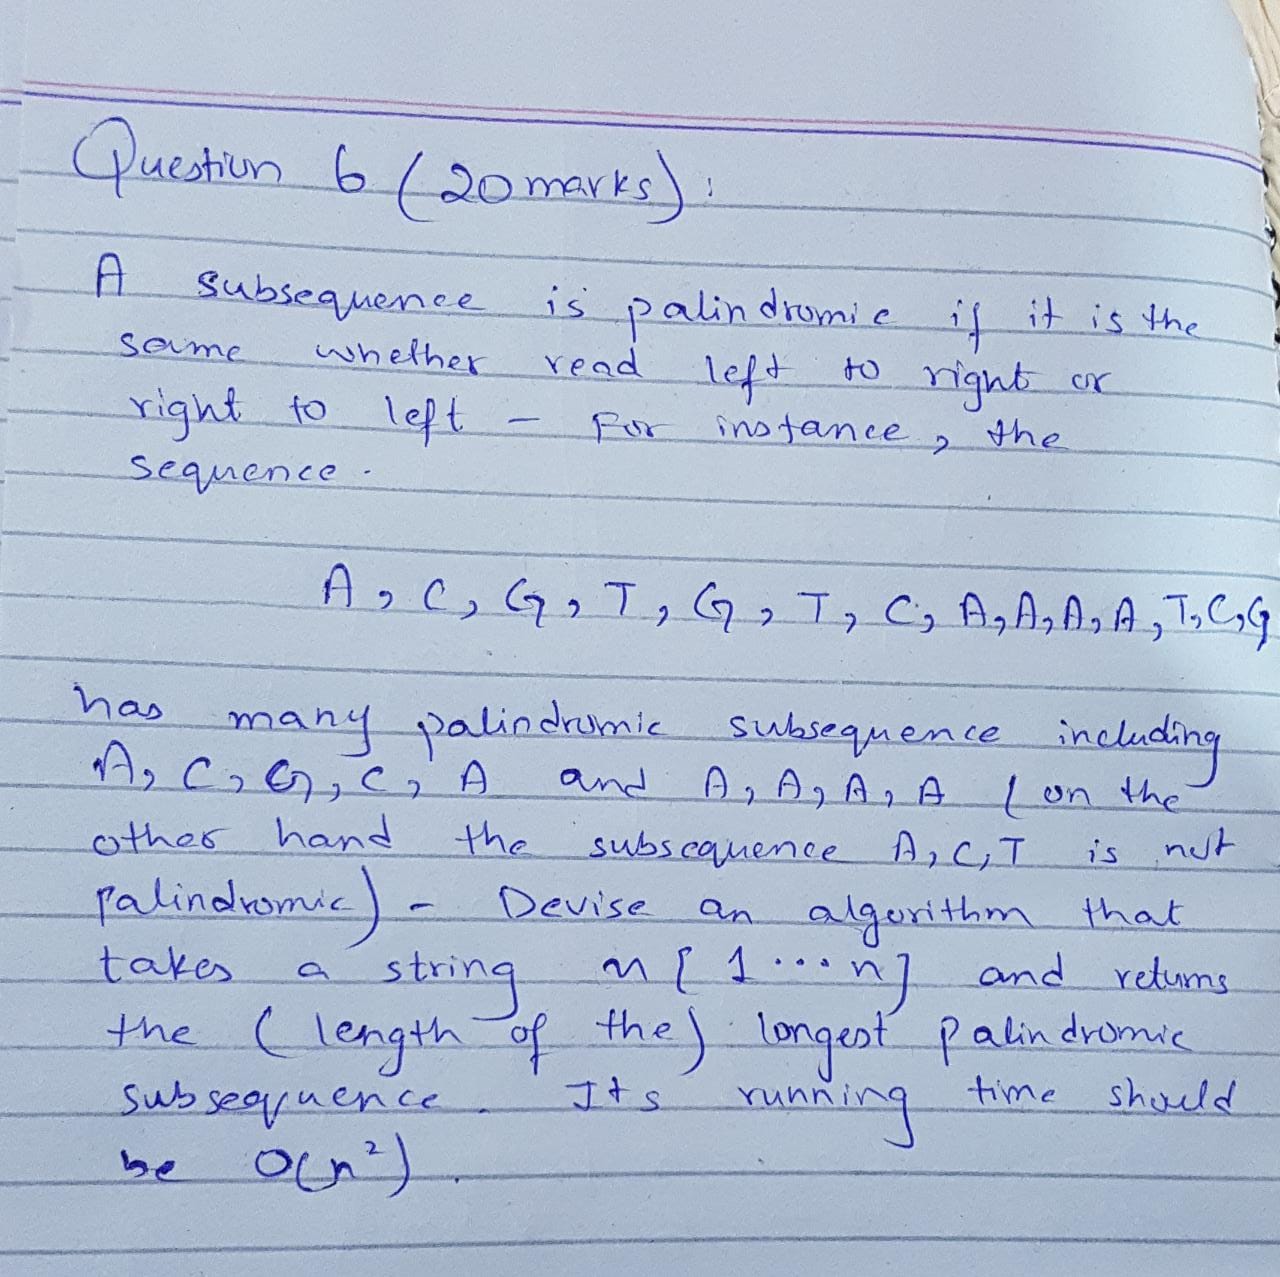 Question 6 (20 marks):
A subsequence is palindromic if it is the
same whether read left to right or
right to left - For instance, the
sequence.
A, C, G, T, G, T, C, A, A, A, A, T, C, G
has many palindromic subsequence including
A, C, G, C, A and A, A, A, A (on the
other hand the subsequence A, C, T is not
palindromic) - Devise an algorithm that
takes a string x[1...n] and returns
the (length of the) longest palindromic
subsequence. Its running time should
be O(n²).